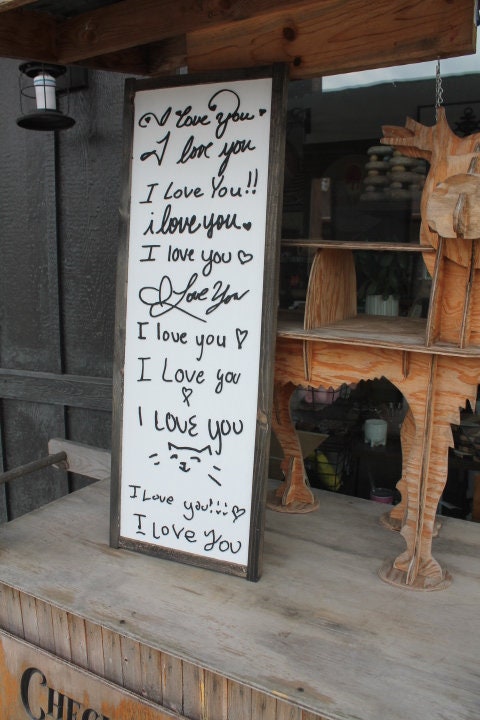 I love You
I love you
I Love You!!
i love you.
I love you
I Love You
I love you
I Love you
I LOVE YOU
I Love you!!!
I Love You
Chec